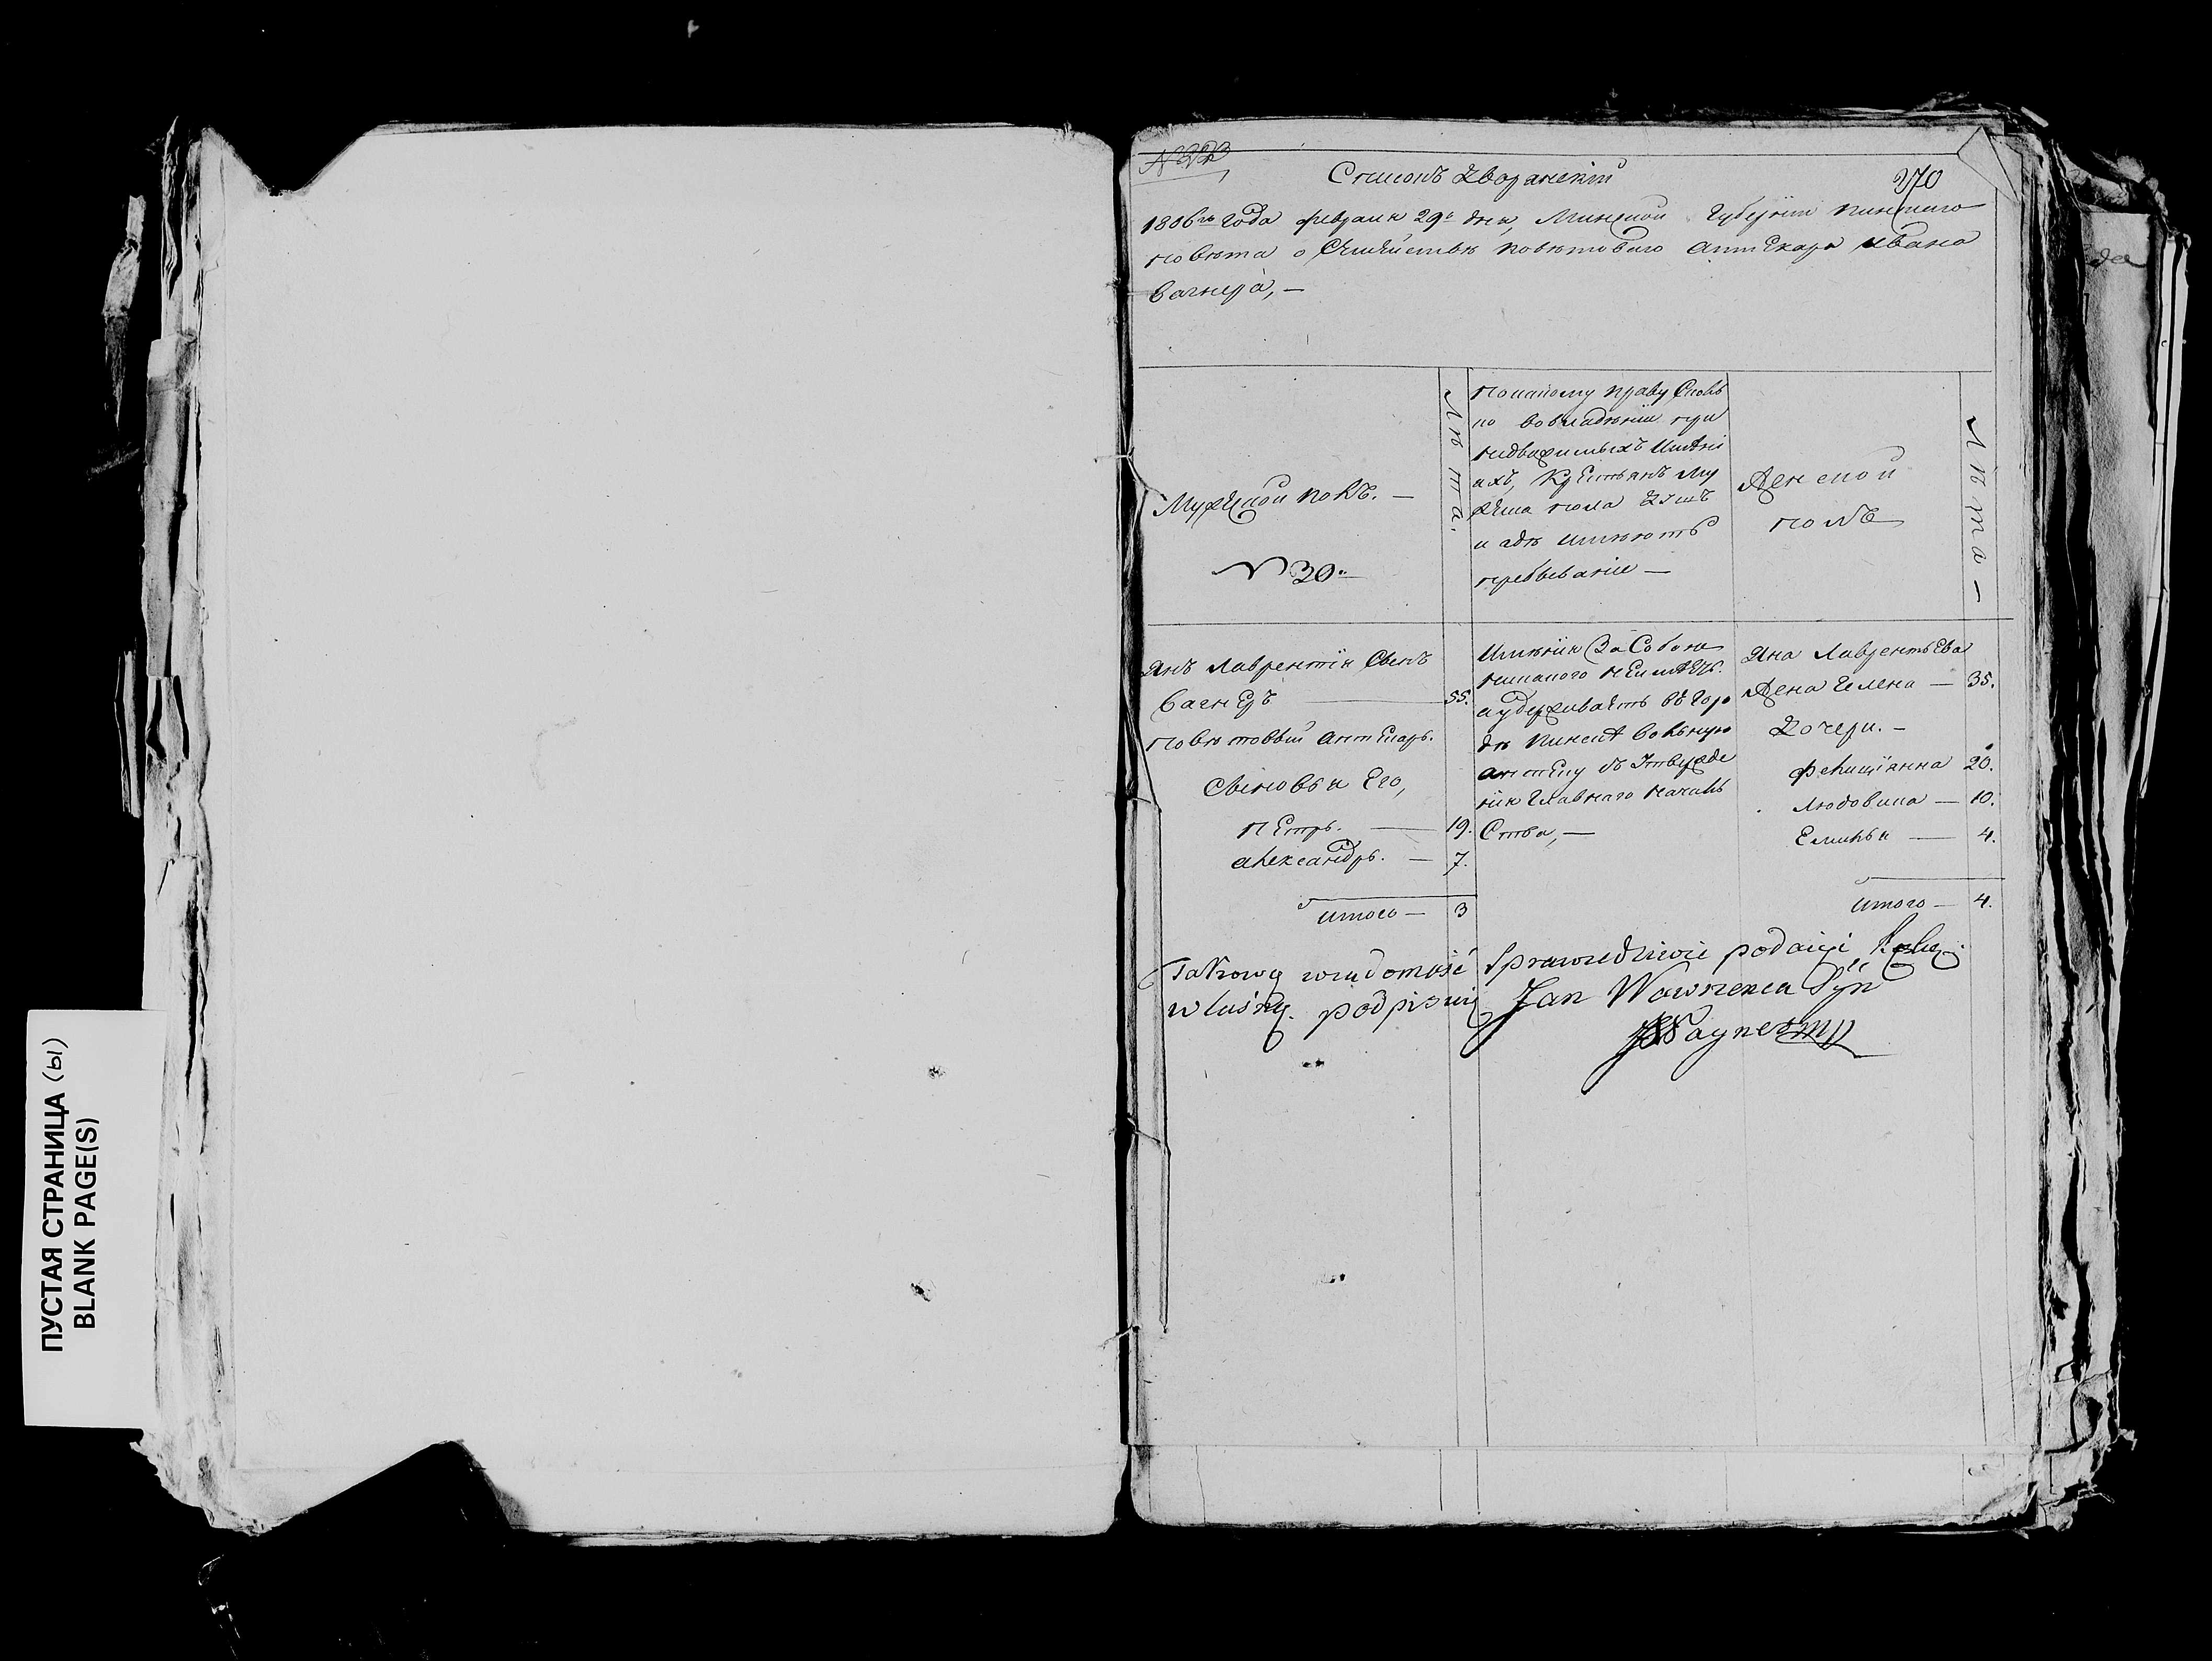 ПУСТАЯ СТРАНИЦА (ы)
BLANK PAGE(S)
Списокъ Дворянскій
270
1816го года февраля 29е дня, Минской Губерніи Пинскаго
повѣта о Семействѣ повѣтоваго Аптекаря Ивана
Вагнера, —
Мужеской полъ. —
N 30.
Лѣта.
По какому праву Сколь
ко во владѣніи при
недвижимыхъ Имѣні
яхъ, Крестьянъ Му
жеска пола Душъ
и гдѣ имѣютъ
пребываніе —
Женской
полъ
Лѣта —
Янъ Лаврентія Сынъ
Вагнеръ — 55.
повѣтовый аптекарь.
Сыновья Его,
Петръ. — 19.
Александръ. — 7.
Итого — 3
Имѣнія За Собою
никакого неимѣетъ.
а удерживаетъ въ Горо
дѣ Пинскѣ Вольную
аптеку съ Утвержде
нія Главнаго Началь
Ства, —
Яна Лаврентьева
Жена Гелена — 35.
Дочери. —
20.
Людовика — 10.
Емилья — 4.
Итого — 4.
Takową wiadomość Sprawiedliwie podaiąć Ręką
własną podpisuię Jan Wawrzenca Syn
Wagner mp